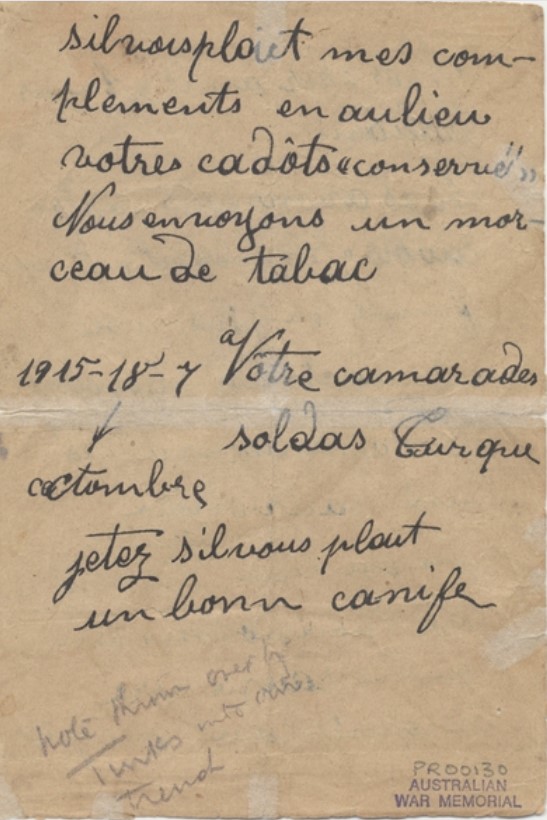 silvousplaiet mes com-
plements enaulieu
votres cadôts «conserve"»
Nous envoyons un mor-
ceau de tabac
1915-18-7 a Vôtre camarades
soldas Turque
octombre
jetez s'ilvous plaut
un bonn canife
note thrown over by
Turks into our
trench
PR00130
AUSTRALIAN
WAR MEMORIAL